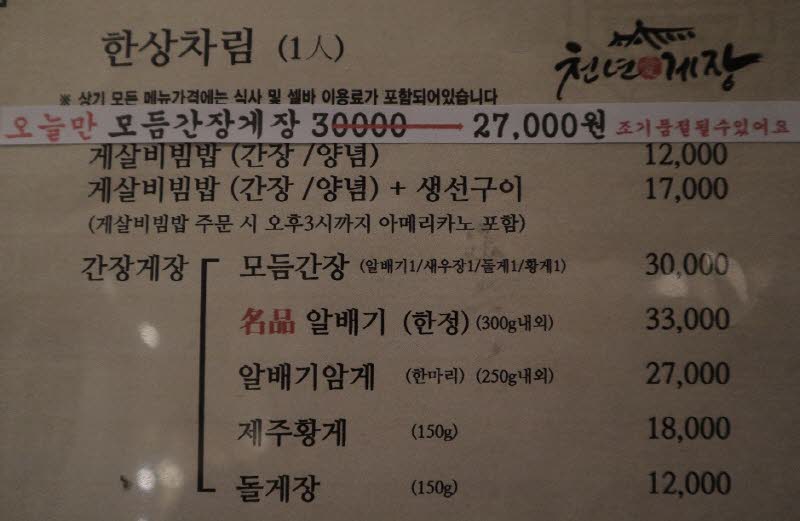 한상차림 (1人)
천년게장
※ 상기 모든 메뉴가격에는 식사 및 셀바 이용료가 포함되어있습니다
오늘만 모듬간장게장 30000 27,000원 조기품절될수있어요
게살비빔밥 (간장 /양념) 12,000
게살비빔밥 (간장 /양념) + 생선구이 17,000
(게살비빔밥 주문 시 오후3시까지 아메리카노 포함)
간장게장 모듬간장 (알배기1/새우장1/돌게1/황게1) 30,000
名品 알배기 (한정) (300g내외) 33,000
알배기암게 (한마리) (250g내외) 27,000
제주황게 (150g) 18,000
돌게장 (150g) 12,000